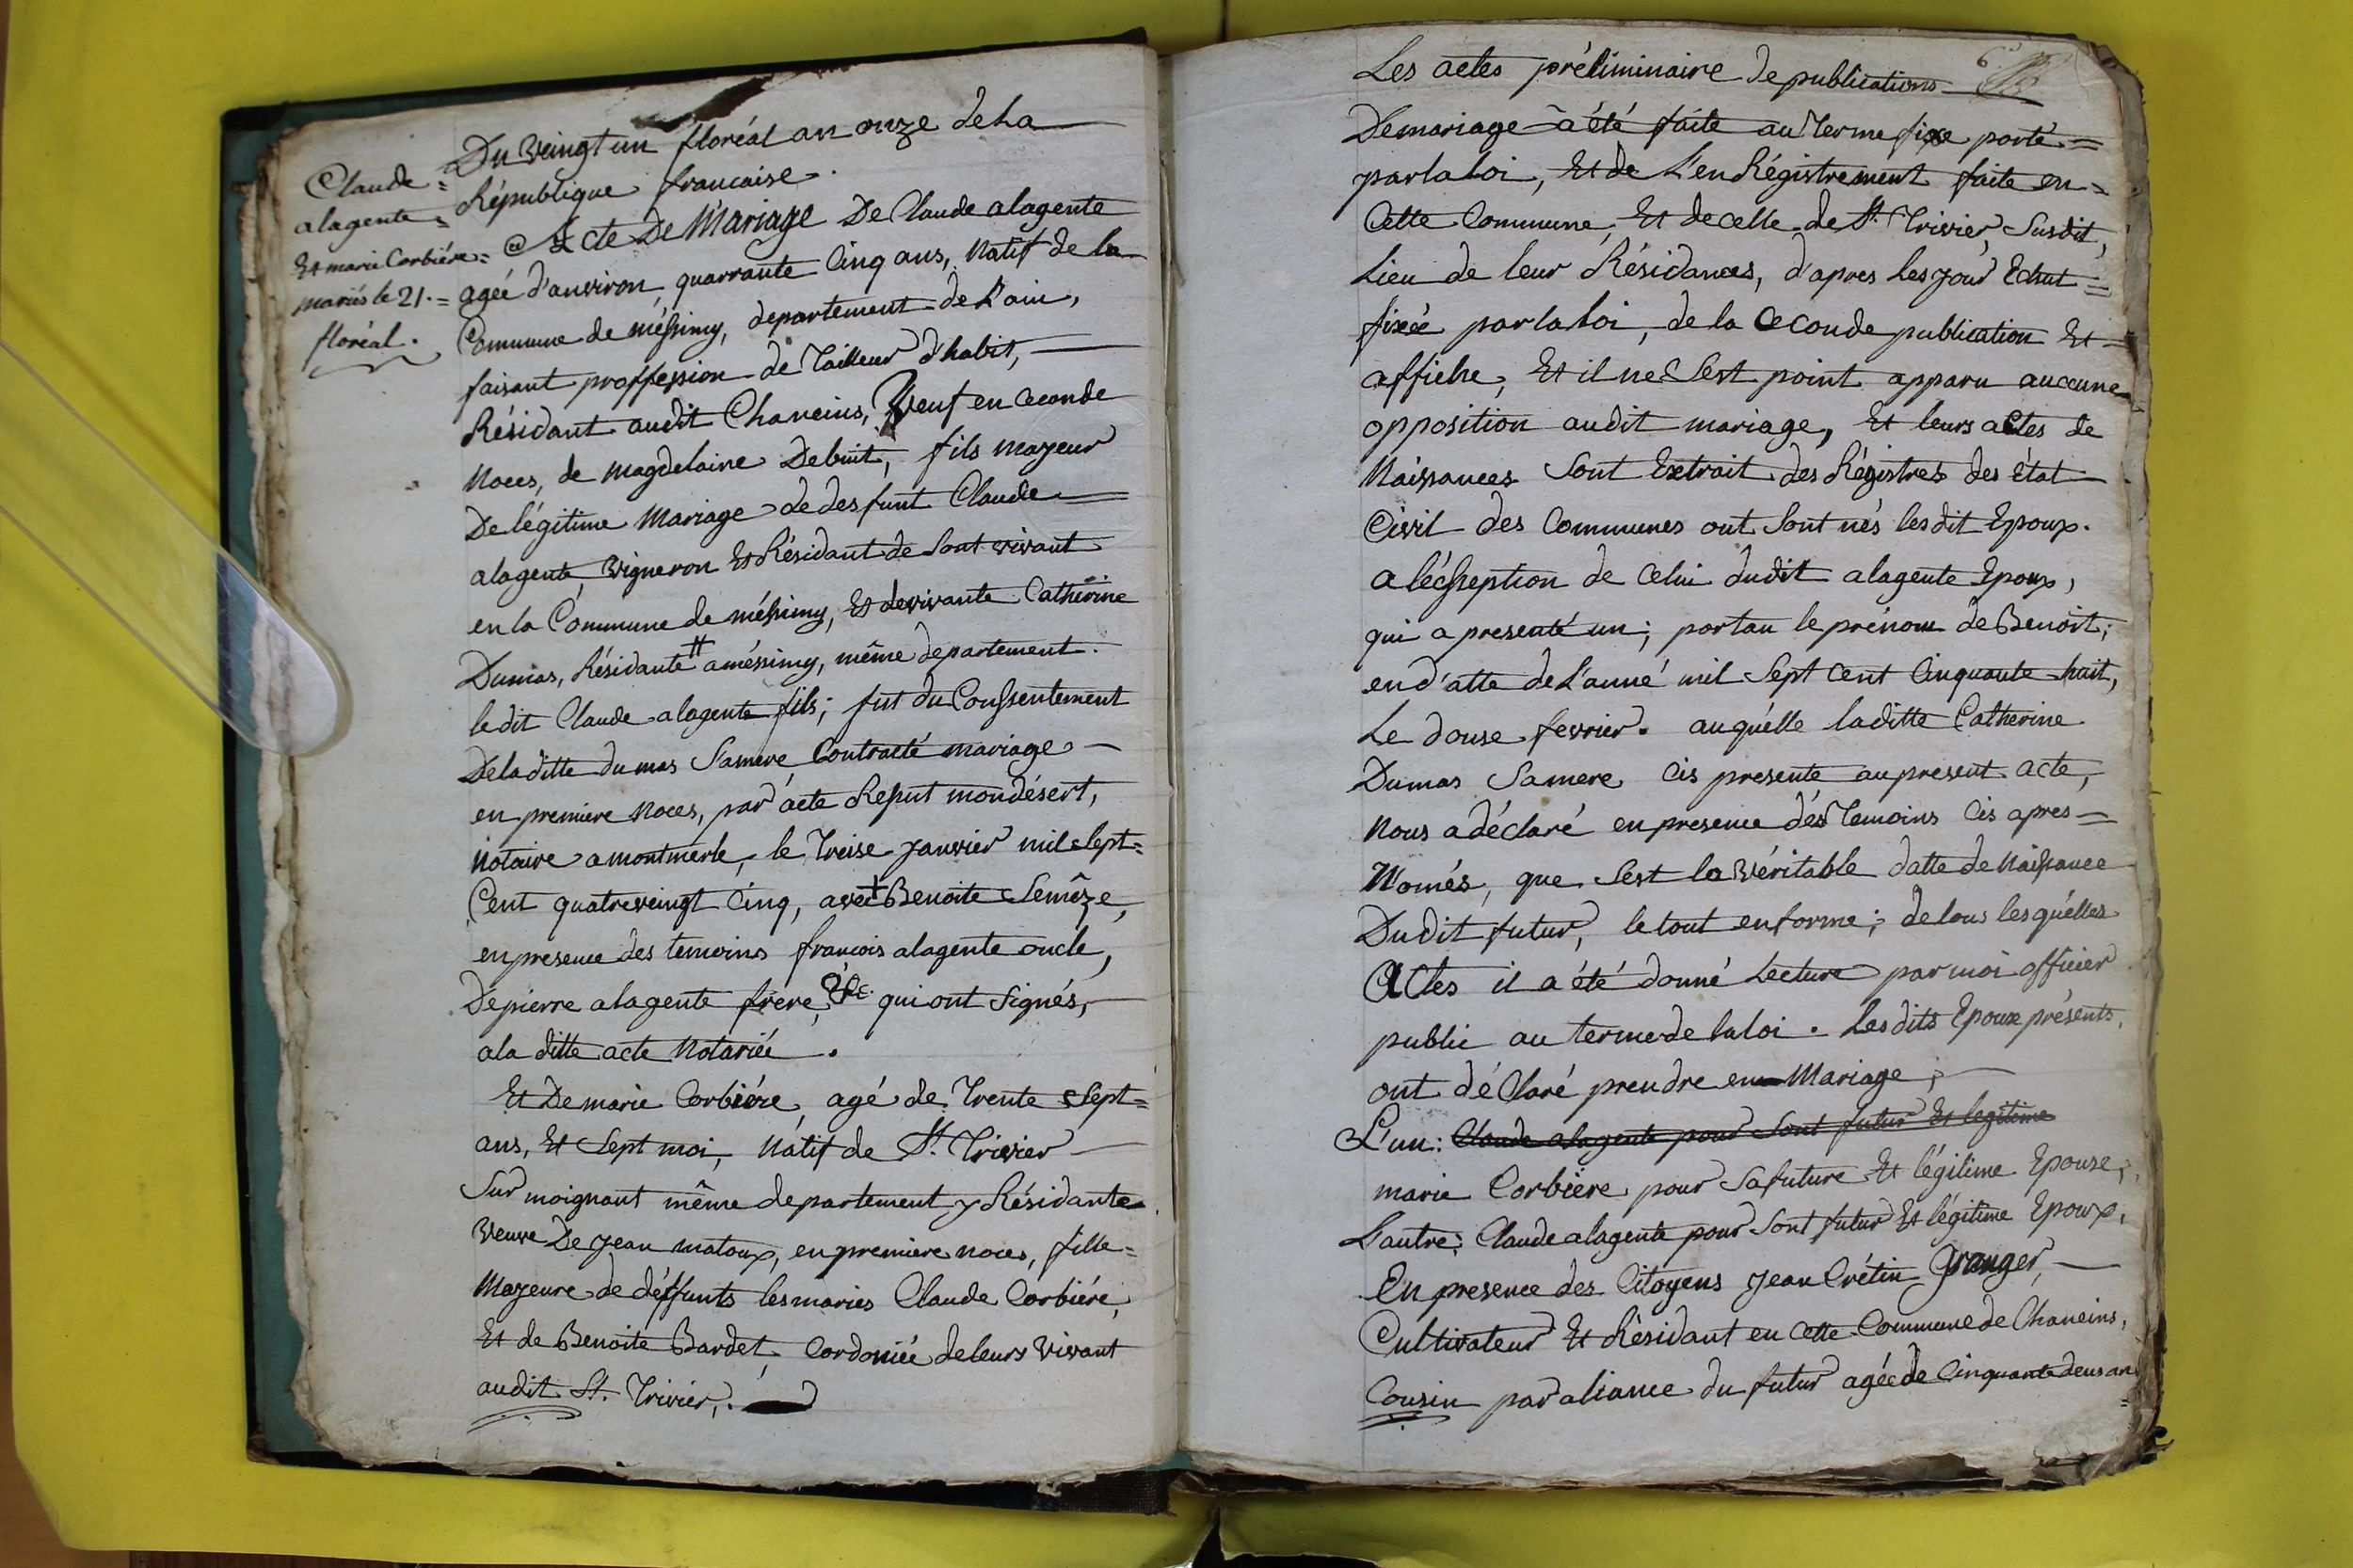 Claude =
alagente =
Et marie Corbiére =
mariés le 21. =
floréal.
Du veingt un floréal an onze de La
République francaise.
Acte De Mariage De Claude alagente
agée d'anviron quarrante Cinq ans, Natif de la
Commune de méssimy, departement de L'ain,
faisant proffession de Tailleur d'habit,
Résidant audit Chaneins, Veuf en ceconde
Noces, de Magdelaine Debuit, fils mayeur
De légitime Mariage de desfunt Claude
alagente, Vigneron Et Résidant de Sont vivant
en la Commune de méssimy, Et devivante Catherine
Dumas, Résidante # améssimy, même departement.
le dit Claude alagente fils; fut du Conssentement
De la ditte dumas Samere Contracté mariage
en premiere Noces, par acte Reput mondésert,
Notaire a montmerle, le Treise janvier mil Sept =
Cent quatreveingt Cinq, avec + Benoite Semôze,
en presence des temoins francois alagente oncle,
De pierre alagente frere, &c. qui ont Signés,
a la ditte acte Notariée.
Et De marie Corbiére agé de Trente Sept =
ans, Et Sept moi, Natif de St. Trivier
Sur moignant même departement y Résidante
Veuve De jean matoux, en premiere noces, fille =
Mayeure de déffunts les maries Claude Corbiére,
Et de Benoite Bardet, Cordoniée de leurs Vivant
audit St. Trivier,.
6
Les actes préliminaire de publications
De mariage à été faite au Terme fixe porté =
par la Loi, Et de L'en Régistrement faite en =
Cette Commune, Et de celle de St. Trivier, Susdit,
Lieu de leur Résidances, d'apres les jour Echut =
fixée par la Loi, de la Ceconde publication Et
affiche, Et il ne Sest point apparu auccune
opposition audit mariage, Et leurs actes de
Naissances Sont Extrait des Régistres des état
Civil des Communes ont Sont nés les dit Epoux.
a l'écsseption de Celui dudit alagente Epoux,
qui a presenté un; portan le prénom de Benoit;
en d'atte de L'anné mil Sept Cent Cinquante huit,
Le douse fevrier. auquélle laditte Catherine
Dumas Samere cis presente au present acte,
Nous a déclaré en presence dés Temoins cis apres =
Només, que Sest la Véritable datte de Naissance
Dudit futur, le tout en forme; de tous lesquélles
Actes il a été donné Lecture par moi officier
public au terme de la loi. Les dits Epoux présents,
ont déClaré prendre en Mariage;
L'un: Claude alagente pour Sont futur Et legitime
marie Corbiere pour Sa future Et légitime Epouse;
L'autre; Claude alagente pour Sont futur Et légitime Epoux,
En presence des Citoyens jean Crétin Granger,
Cultivateur Et Résidant en Cette Commune de Chaneins,
Cousin par aliance du futur agée de Cinquante deus an =